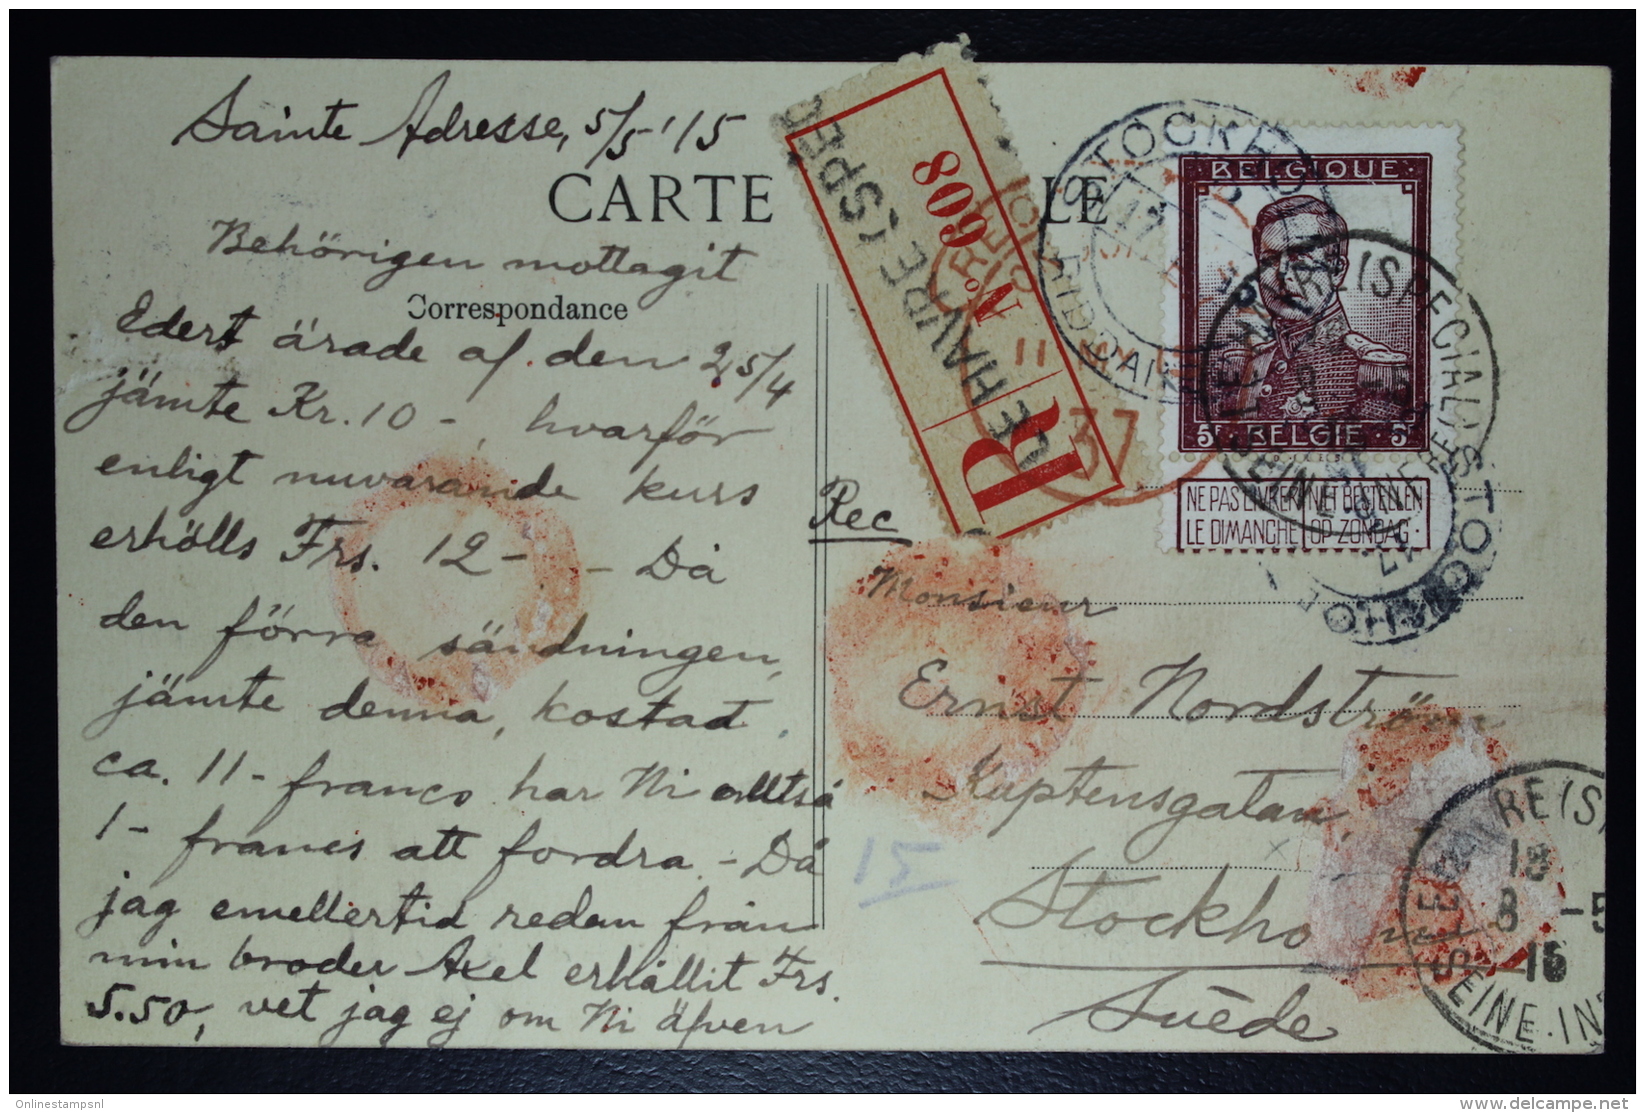 Sainte Adresse, 5/5 '15
CARTE
LE
Correspondance
Behörigen mottagit
Edert ärade af den 25/4
jämte Kr. 10-, hvarför
enligt nuvarande kurs
erhölls Frs. 12- - Då
den förra sändningen,
jämte denna, kostad
ca. 11- franco har Ni alltså
1- francs att fordra. - Då
jag emellertid redan från
min broder Axel erhållit Frs.
5.50, vet jag ej om Ni äfven
LE HAVRE (SPEC
R No 608
37
BELGIQUE
5F BELGIE 5F
NE PAS LIVRER LE DIMANCHE
NIET BESTELLEN OP ZONDAG
STOCKHOLM
LE HAVRE (SPECIAL)
SEINE INFRE
STOCKHOLM
Rec
Monsieur
Ernst Nordström
Kaptensgatan
15
Stockholm
Suède
RE (S
18
8 -5
15
SEINE. IN
Onlinestampsnl
http://www.delcampe.net